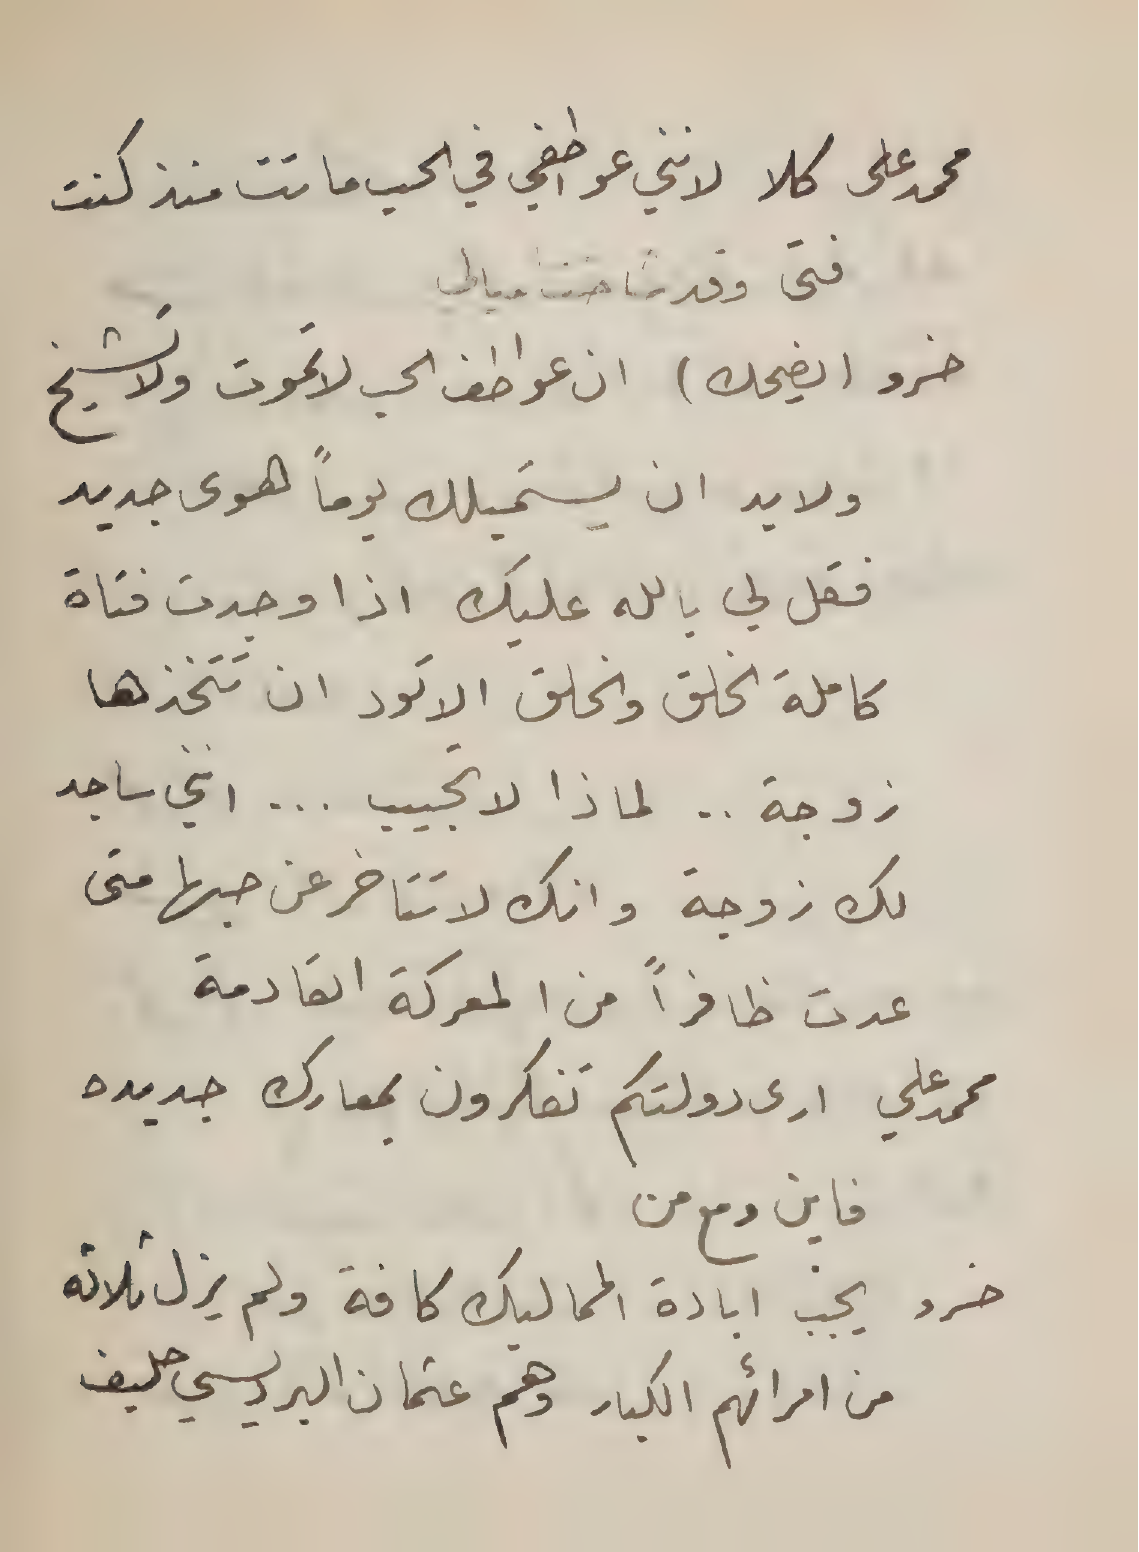 محمد على كلا لانني عواطفي في الحب ماتت منذ كنت
فتى وقد شاخت
خسرو (يضحك) ان عواطف الحب لا تموت ولا تشيخ
ولابد ان يستميلك يوماً هوى جديد
فقل لي بالله عليك اذا وجدت فتاة
كاملة الخلق والخلق الا تود ان تتخذها
زوجة .. لماذا لا تجيب ... انني ساجد
لك زوجة وانك لا تتاخر عن حبها متى
عدت ظافراً من المعركة القادمة
محمد علي ارى دولتكم تفكرون بمعارك جديده
فاين ومع من
خسرو يجب ابادة المماليك كافة ولم يزل ثلاثه
من امرائهم الكبار وهم عثمان البرديسي حليف